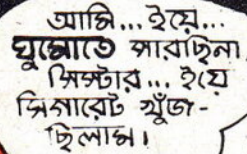 আমি... ইয়ে...
ঘুমোতে পারছিনা
সিস্টার... ইয়ে
সিগারেট খুঁজ-
ছিলাম।